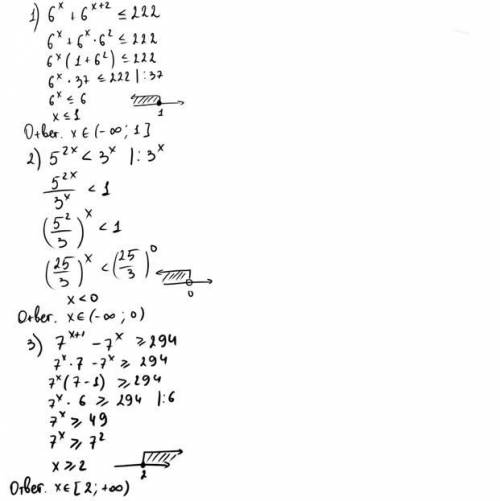 1) 6^x + 6^{x+2} ≤ 222
6^x + 6^x · 6^2 ≤ 222
6^x (1 + 6^2) ≤ 222
6^x · 37 ≤ 222 | : 37
6^x ≤ 6
x ≤ 1
1
Ответ. x ∈ (-∞ ; 1]
2) 5^{2x} < 3^x | : 3^x
5^{2x}/3^x < 1
(5^2/3)^x < 1
(25/3)^x < (25/3)^0
x < 0
0
Ответ. x ∈ (-∞ ; 0)
3) 7^{x+1} - 7^x ≥ 294
7^x · 7 - 7^x ≥ 294
7^x (7 - 1) ≥ 294
7^x · 6 ≥ 294 | : 6
7^x ≥ 49
7^x ≥ 7^2
x ≥ 2
2
Ответ. x ∈ [2 ; +∞)